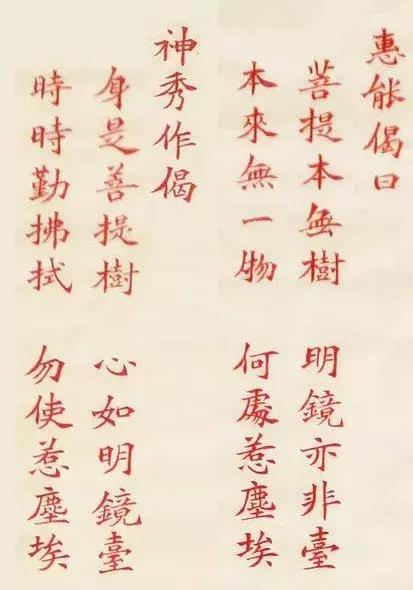 惠能偈曰
菩提本無樹 明鏡亦非臺
本來無一物 何處惹塵埃
神秀作偈
身是菩提樹 心如明鏡臺
時時勤拂拭 勿使惹塵埃